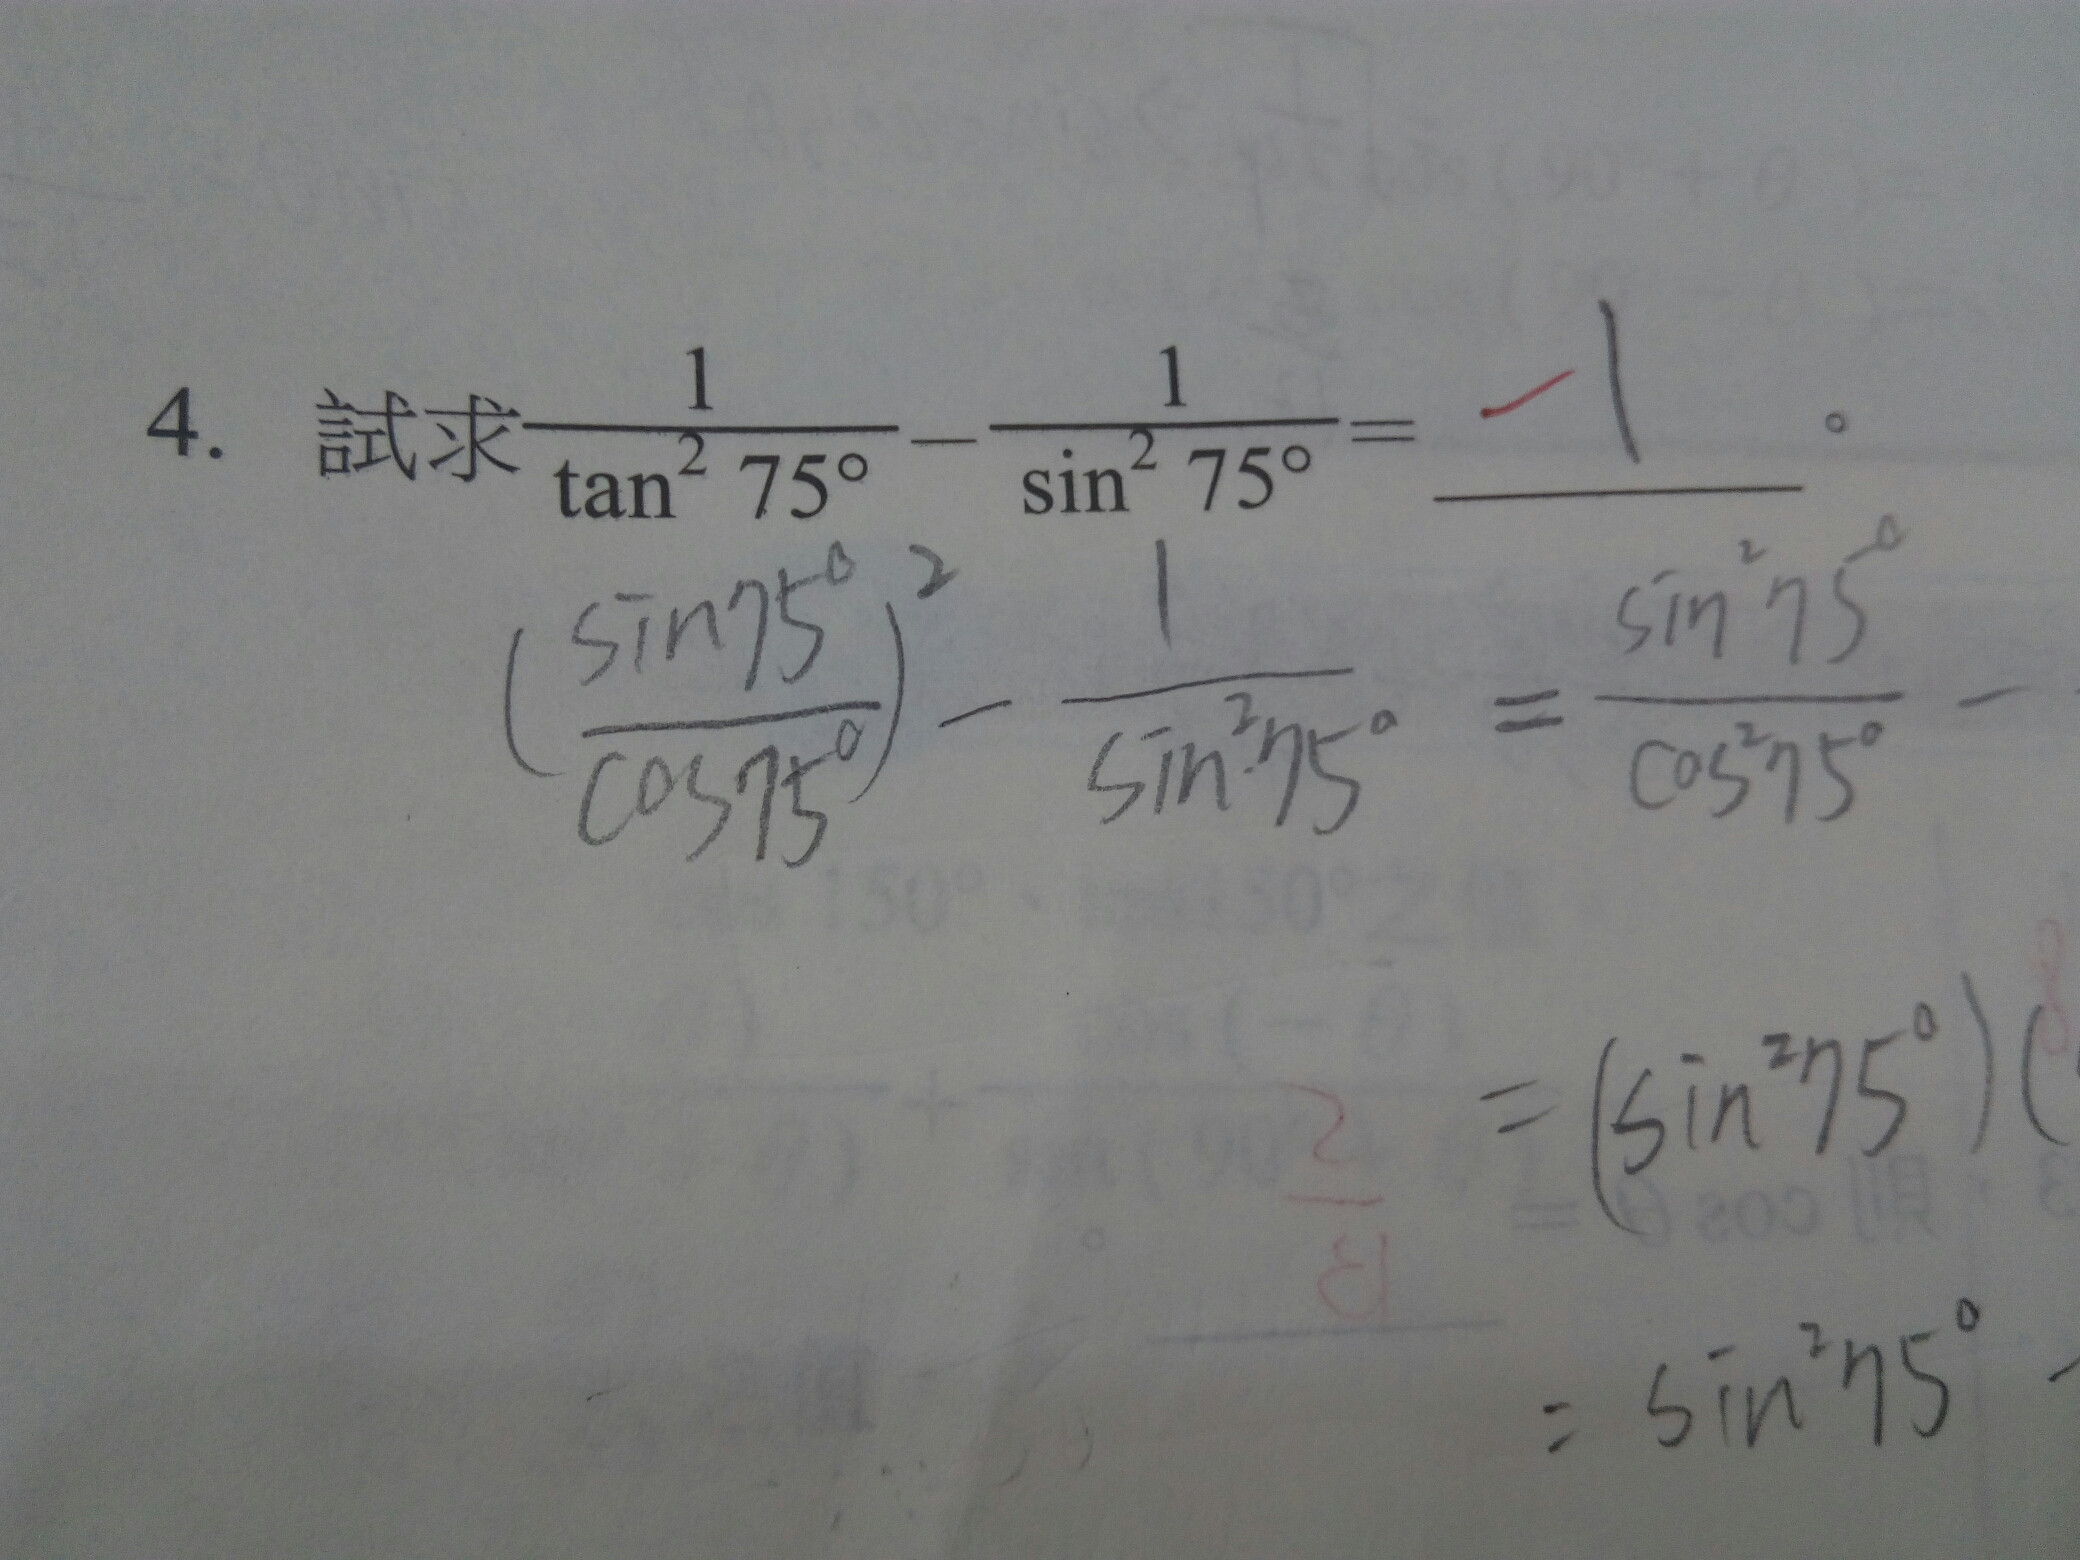 4. 試求 1/tan² 75° − 1/sin² 75° = −1 。
(sin75°/cos75°)² − 1/sin²75° = sin²75°/cos²75° −
= (sin²75°)(
= sin²75° −